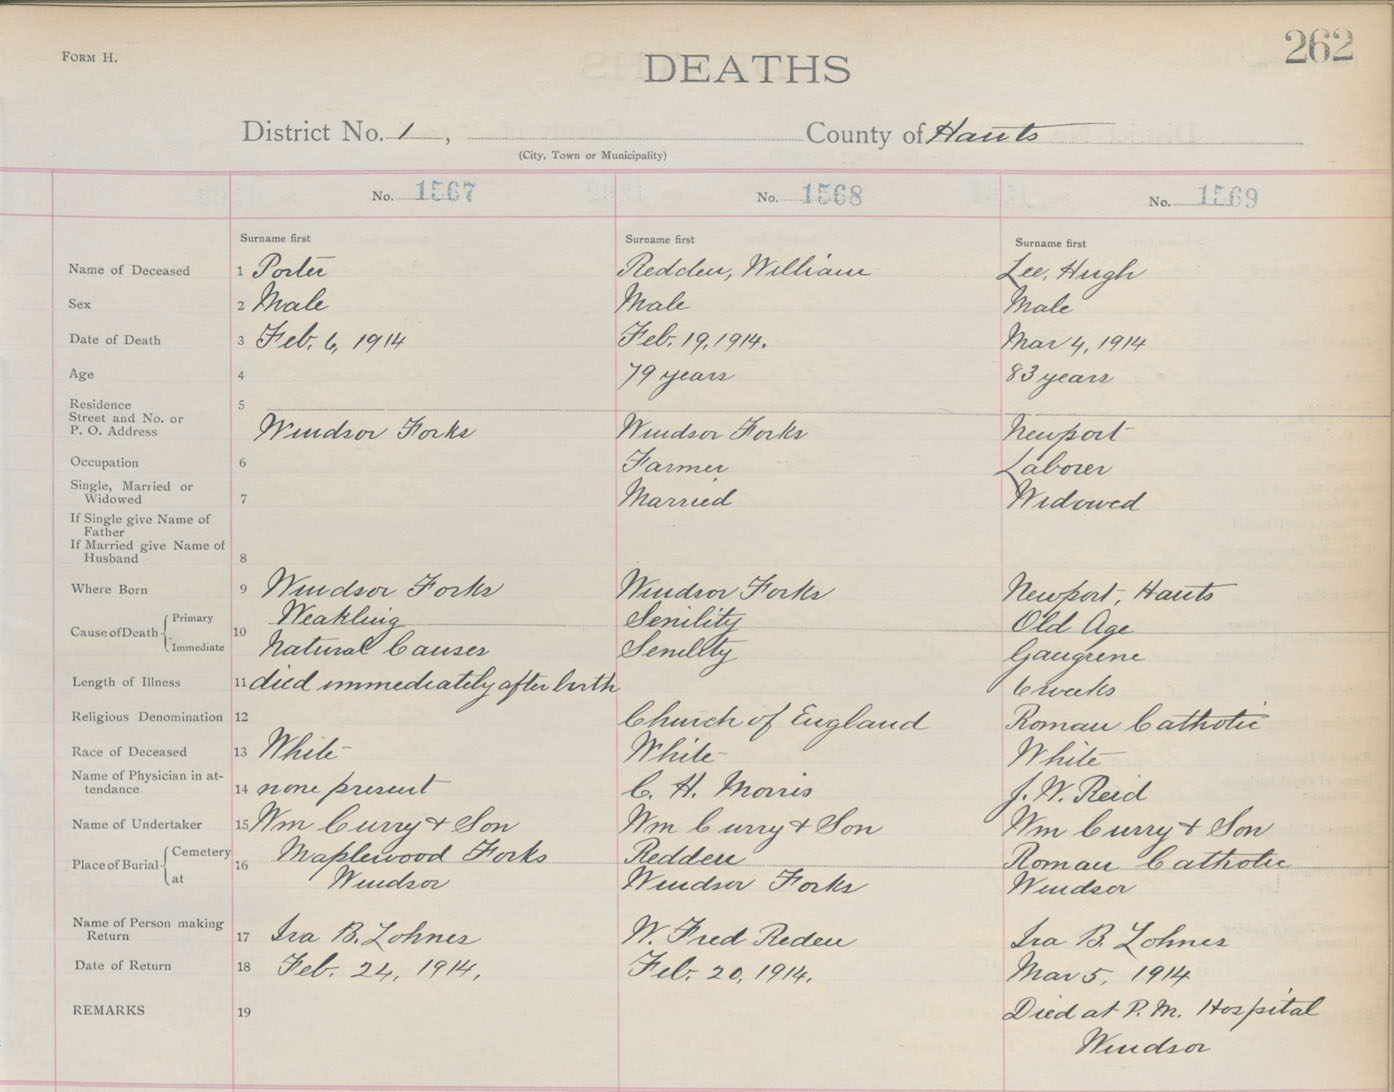 Form H.
DEATHS
262
District No. 1, County of Hants
(City, Town or Municipality)
No. 1567 No. 1568 No. 1569
Surname first Surname first Surname first
Name of Deceased 1 Porter Redden, William Lee, Hugh
Sex 2 Male Male Male
Date of Death 3 Feb. 6, 1914 Feb. 19, 1914. Mar 4, 1914
Age 4 79 years 83 years
Residence 5
Street and No. or
P. O. Address Windsor Forks Windsor Forks Newport
Occupation 6 Farmer Laborer
Single, Married or
Widowed 7 Married Widowed
If Single give Name of
Father
If Married give Name of
Husband 8
Where Born 9 Windsor Forks Windsor Forks Newport, Hants
Cause of Death 10 Primary Weakling Senility Old Age
Immediate Natural Causes Senility Gangrene
Length of Illness 11 died immediately after birth 6 weeks
Religious Denomination 12 Church of England Roman Catholic
Race of Deceased 13 White White White
Name of Physician in at-
tendance 14 none present C. H. Morris J. W. Reid
Name of Undertaker 15 Wm Curry & Son Wm Curry & Son Wm Curry & Son
Place of Burial 16 Cemetery Maplewood Forks Redden Roman Catholic
at Windsor Windsor Forks Windsor
Name of Person making
Return 17 Ira B. Lohnes W. Fred Reden Ira B. Lohnes
Date of Return 18 Feb. 24, 1914. Feb. 20, 1914. Mar 5, 1914
REMARKS 19 Died at P. M. Hospital
Windsor